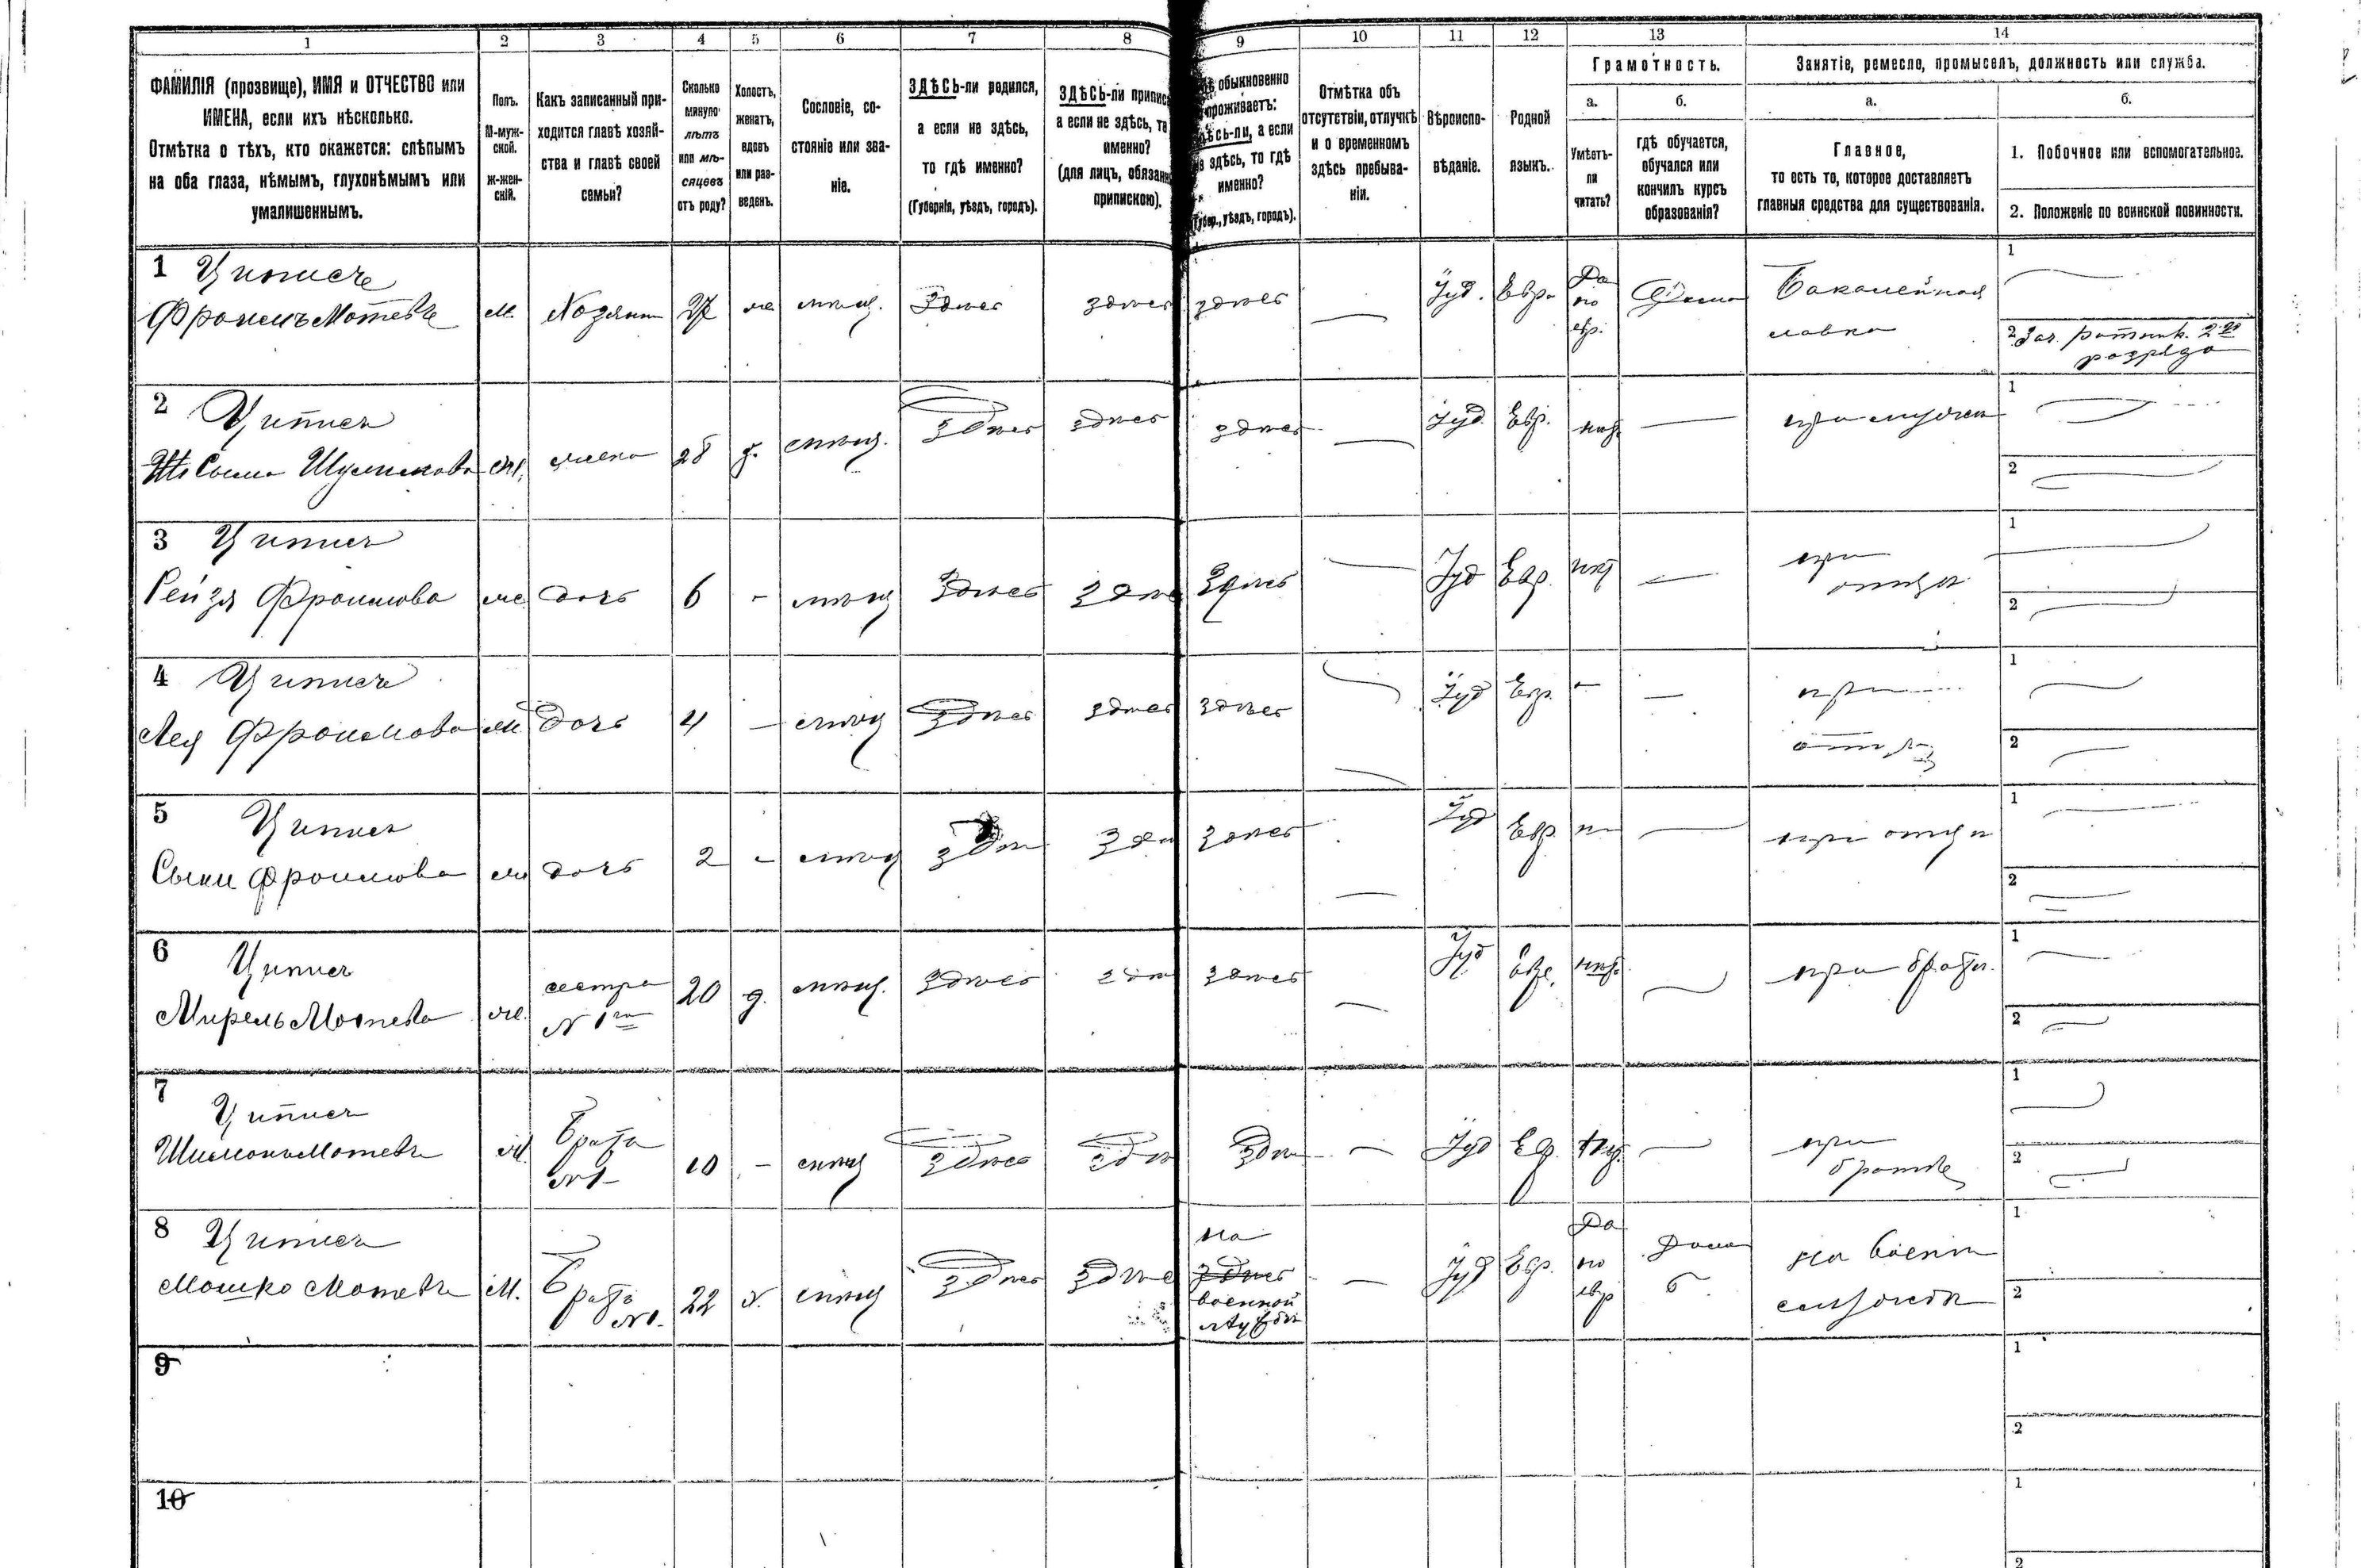 1 2 3 4 5 6 7 8 9 10 11 12 13 14
ФАМИЛІЯ (прозвище), ИМЯ и ОТЧЕСТВО или
ИМЕНА, если ихъ нѣсколько.
Отмѣтка о тѣхъ, кто окажется: слѣпымъ
на оба глаза, нѣмымъ, глухонѣмымъ или
умалишеннымъ.
Полъ.
М-муж-
ской.
Ж-жен-
скій.
Какъ записанный при-
ходится главѣ хозяй-
ства и главѣ своей
семьи?
Сколько
минуло
лѣтъ
или мѣ-
сяцевъ
отъ роду?
Холостъ,
женатъ,
вдовъ
или раз-
веденъ.
Сословіе, со-
стояніе или зва-
ніе.
ЗДѢСЬ-ли родился,
а если не здѣсь,
то гдѣ именно?
(Губернія, уѣздъ, городъ).
ЗДѢСЬ-ли припис
а если не здѣсь, то
именно?
(для лицъ, обязан
припискою).
обыкновенно
проживаетъ:
здѣсь-ли, а если
не здѣсь, то гдѣ
именно?
(Губер., уѣздъ, городъ).
Отмѣтка объ
отсутствіи, отлучкѣ
и о временномъ
здѣсь пребыва-
ніи.
Вѣроиспо-
вѣданіе.
Родной
языкъ.
Грамотность.
а.
Умѣетъ-
ли
читать?
б.
гдѣ обучается,
обучался или
кончилъ курсъ
образованія?
Занятіе, ремесло, промыселъ, должность или служба.
а.
Главное,
то есть то, которое доставляетъ
главныя средства для существованія.
б.
1. Побочное или вспомогательное.
2. Положеніе по воинской повинности.
1 Циписъ
Фроимъ Мотевъ м. Хозяинъ 27 же мѣщ. Здѣсь здѣсь здѣсь — Іуд. Евр. Да по евр. Дома Бакалейная
лавка
1
2 Зач. ратник. 2го
разряда
2 Циписъ
Сыма жена 28 мѣщ. Здѣсь здѣсь здѣсь — Іуд. Евр. нѣт — при мужѣ
1
2
3 Циписъ
Рейзя Фроимова ж дочь 6 - мѣщ Здѣсь здѣсь Здѣсь — Іуд Евр. нѣт — при
отцѣ
1
2
4 Циписъ
Лея Фроимова ж дочь 4 — мѣщ Здѣсь здѣсь здѣсь Іуд Евр. - — при
отцѣ
1
2
5 Циписъ
Фроимова ж дочь 2 - мѣщ здѣ здѣ здѣсь — Іуд Евр — при отцѣ
1
2
6 Циписъ
Мирель Мотева ж. сестра
№ 1го 20 д. мѣщ. здѣсь здѣ здѣсь — Іуд Евр. нѣт при братѣ.
1
2
7 Циписъ
Шимонъ Мотевъ М. Братъ
№1 10 - мѣщ здѣсь здѣ здѣ — Іуд Евр. нѣт. — при
братѣ
1
2
8 Циписъ
Мошко Мотевъ М. Братъ
№1. 22 х. мѣщ здѣсь здѣсь на
здѣсь
военной
службѣ — Іуд Евр. Да по евр Дома на военн
службѣ
1
2
9
1
2
10
1
2